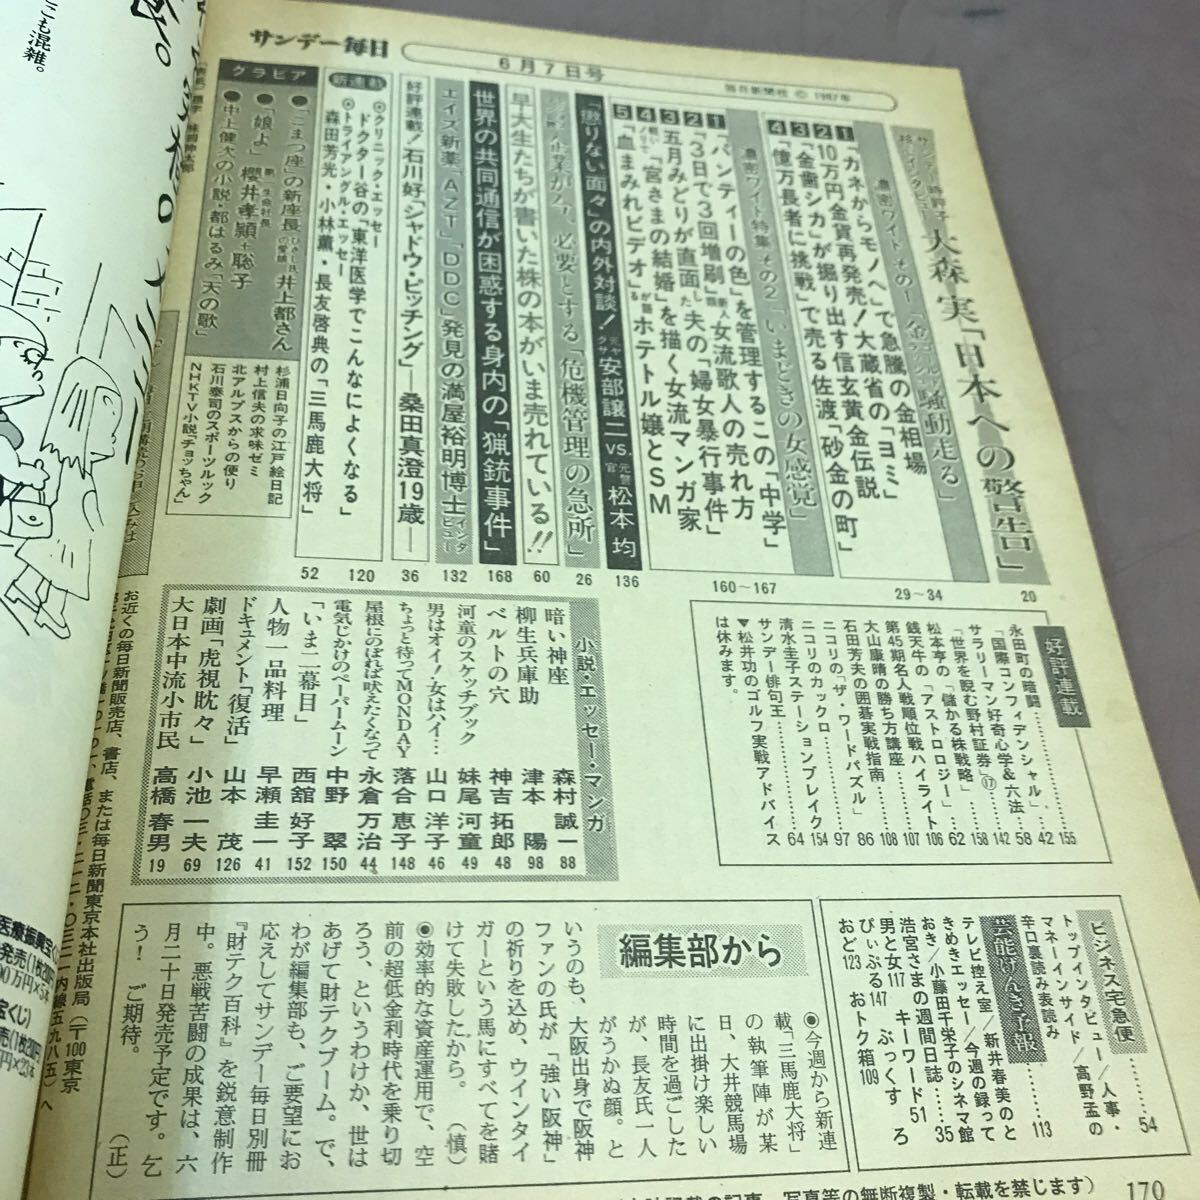 サンデー毎日
6月7日号
毎日新聞社 © 1987年
大森 実「日本への警告」
20
濃密ワイド その1「金騒動走る」
1「カネからモノへ」で急騰の金相場
2 10万円金貨再発売!大蔵省の「ヨミ」
3「金歯シカ」が掘り出す信玄黄金伝説
4「億万長者に挑戦」で売る佐渡「砂金の町」
29〜34
濃密ワイド特集 その2「いまどきの女感覚」
1「パンティーの色」を管理するこの「中学」
2「3日で3回増刷」新人女流歌人の売れ方
3 五月みどりが直面した夫の「婦女暴行事件」
4「宮さまの結婚」を描く女流マンガ家
5「血まみれビデオ」が語るホテトル嬢とSM
160〜167
「懲りない面々」の内外対談! 元ヤクザ安部譲二 vs. 元警官松本 均
136
企業が今、必要とする「危機管理の急所」
26
早大生たちが書いた株の本がいま売れている!!
60
世界の共同通信が困惑する身内の「猟銃事件」
168
エイズ新薬「AZT」「DDC」発見の満屋裕明博士インタビュー
132
好評連載!石川好「シャドウ・ピッチング」―桑田真澄19歳―
36
新連載
◎クリニック・エッセー
ドクター谷の「東洋医学でこんなによくなる」
120
◎トライアングル・エッセー
森田芳光・小林薫・長友啓典の「三馬鹿大将」
52
グラビア
●「こまつ座」の新座長 井上都さん
●「娘よ」 櫻井孝頴+聡子
●中上健次の小説・都はるみ「天の歌」
杉浦日向子の江戸絵日記
村上信夫の求味ゼミ
北アルプスからの便り
石川泰司のスポーツルック
NHKTV小説「チョッちゃん」
好評連載
永田町の暗闘………155
「国際コンフィデンシャル」………42
サラリーマン好奇心学&六法………58
「世界を読む野村証券」⑰………142
松本亨の「儲かる株戦略」………158
銭天牛の「アストロロジー」………62
第45期名人戦順位戦ハイライト………106
大山康晴の勝ち方講座………107
石田芳夫の囲碁実戦指南………108
ニコリの「ザ・ワードパズル」………86
ニコリのカックロ………97
清水圭子ステーションブレイク………154
サンデー俳句王………64
▼松井功のゴルフ実戦アドバイスは休みます。
小説・エッセー・マンガ
暗い神座 森村誠一 88
柳生兵庫助 津本 陽 98
ベルトの穴 神吉拓郎 48
河童のスケッチブック 妹尾河童 49
男はオイ!女はハイ… 山口洋子 46
ちょっと待ってMONDAY 落合恵子 148
屋根にのぼれば吠えたくなって 永倉万治 44
電気じかけのペーパームーン 中野 翠 150
「いま二幕目」 西舘好子 152
人物一品料理 早瀬圭一 41
ドキュメント「復活」 山本 茂 126
劇画「虎視眈々」 小池一夫 69
大日本中流小市民 高橋春男 19
ビジネス宅急便
トップインタビュー/人事・マネーインサイド/高野孟の辛口裏読み表読み………54
芸能げんき予報………113
テレビ控え室/新井春美のときめきエッセー/今週の録っておき/小藤田千栄子のシネマ館
浩宮さまの週間日誌………35
男と女117 キーワード51
ぴぃぷる147 ぶっくす
おど123 おトク箱109
編集部から
◎今週から新連載「三馬鹿大将」の執筆陣が某日、大井競馬場に出掛け楽しい時間を過ごしたが、長友氏一人がうかぬ顔。というのも、大阪出身で阪神ファンの氏が「強い阪神」の祈りを込め、ウインタイガーという馬にすべてを賭けて失敗したから。 (慎)
◎効率的な資産運用で、空前の超低金利時代を乗り切ろう、というわけか、世はあげて財テクブーム。で、わが編集部も、ご要望にお応えしてサンデー毎日別冊『財テク百科』を鋭意制作中。悪戦苦闘の成果は、六月二十日発売予定です。乞う!ご期待。 (正)
お近くの毎日新聞販売店、書店、または毎日新聞東京本社出版局(〒100東京
内線五九八五)へ
写真等の無断複製・転載を禁じます)
170
こも混雑。